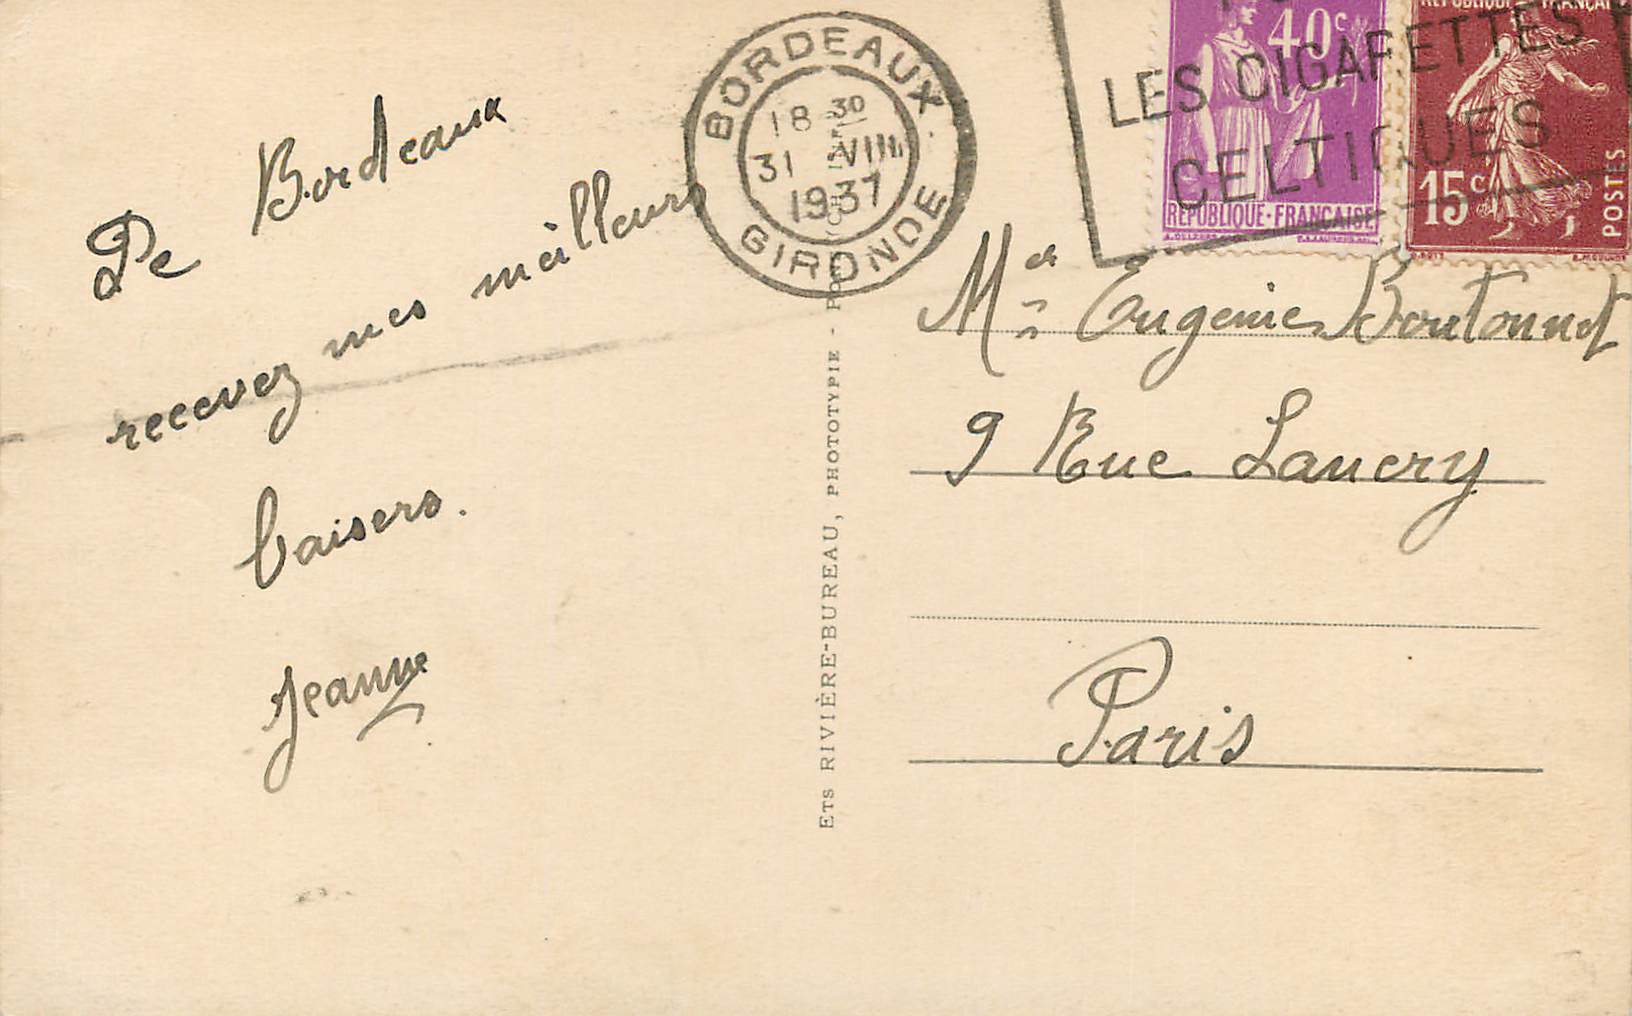 De Bordeaux
recevez mes meilleurs
baisers.
Jeanne
BORDEAUX
18 30
31 VIII
1937
GIRONDE
LES CIGARETTES
CELTIQUES
40c
REPUBLIQUE·FRANÇAISE
REPUBLIQUE FRANÇAISE
15c
POSTES
Eugenie Boutonnet
9 Rue Lancry
Paris
ETS RIVIÈRE-BUREAU, PHOTOTYPIE -